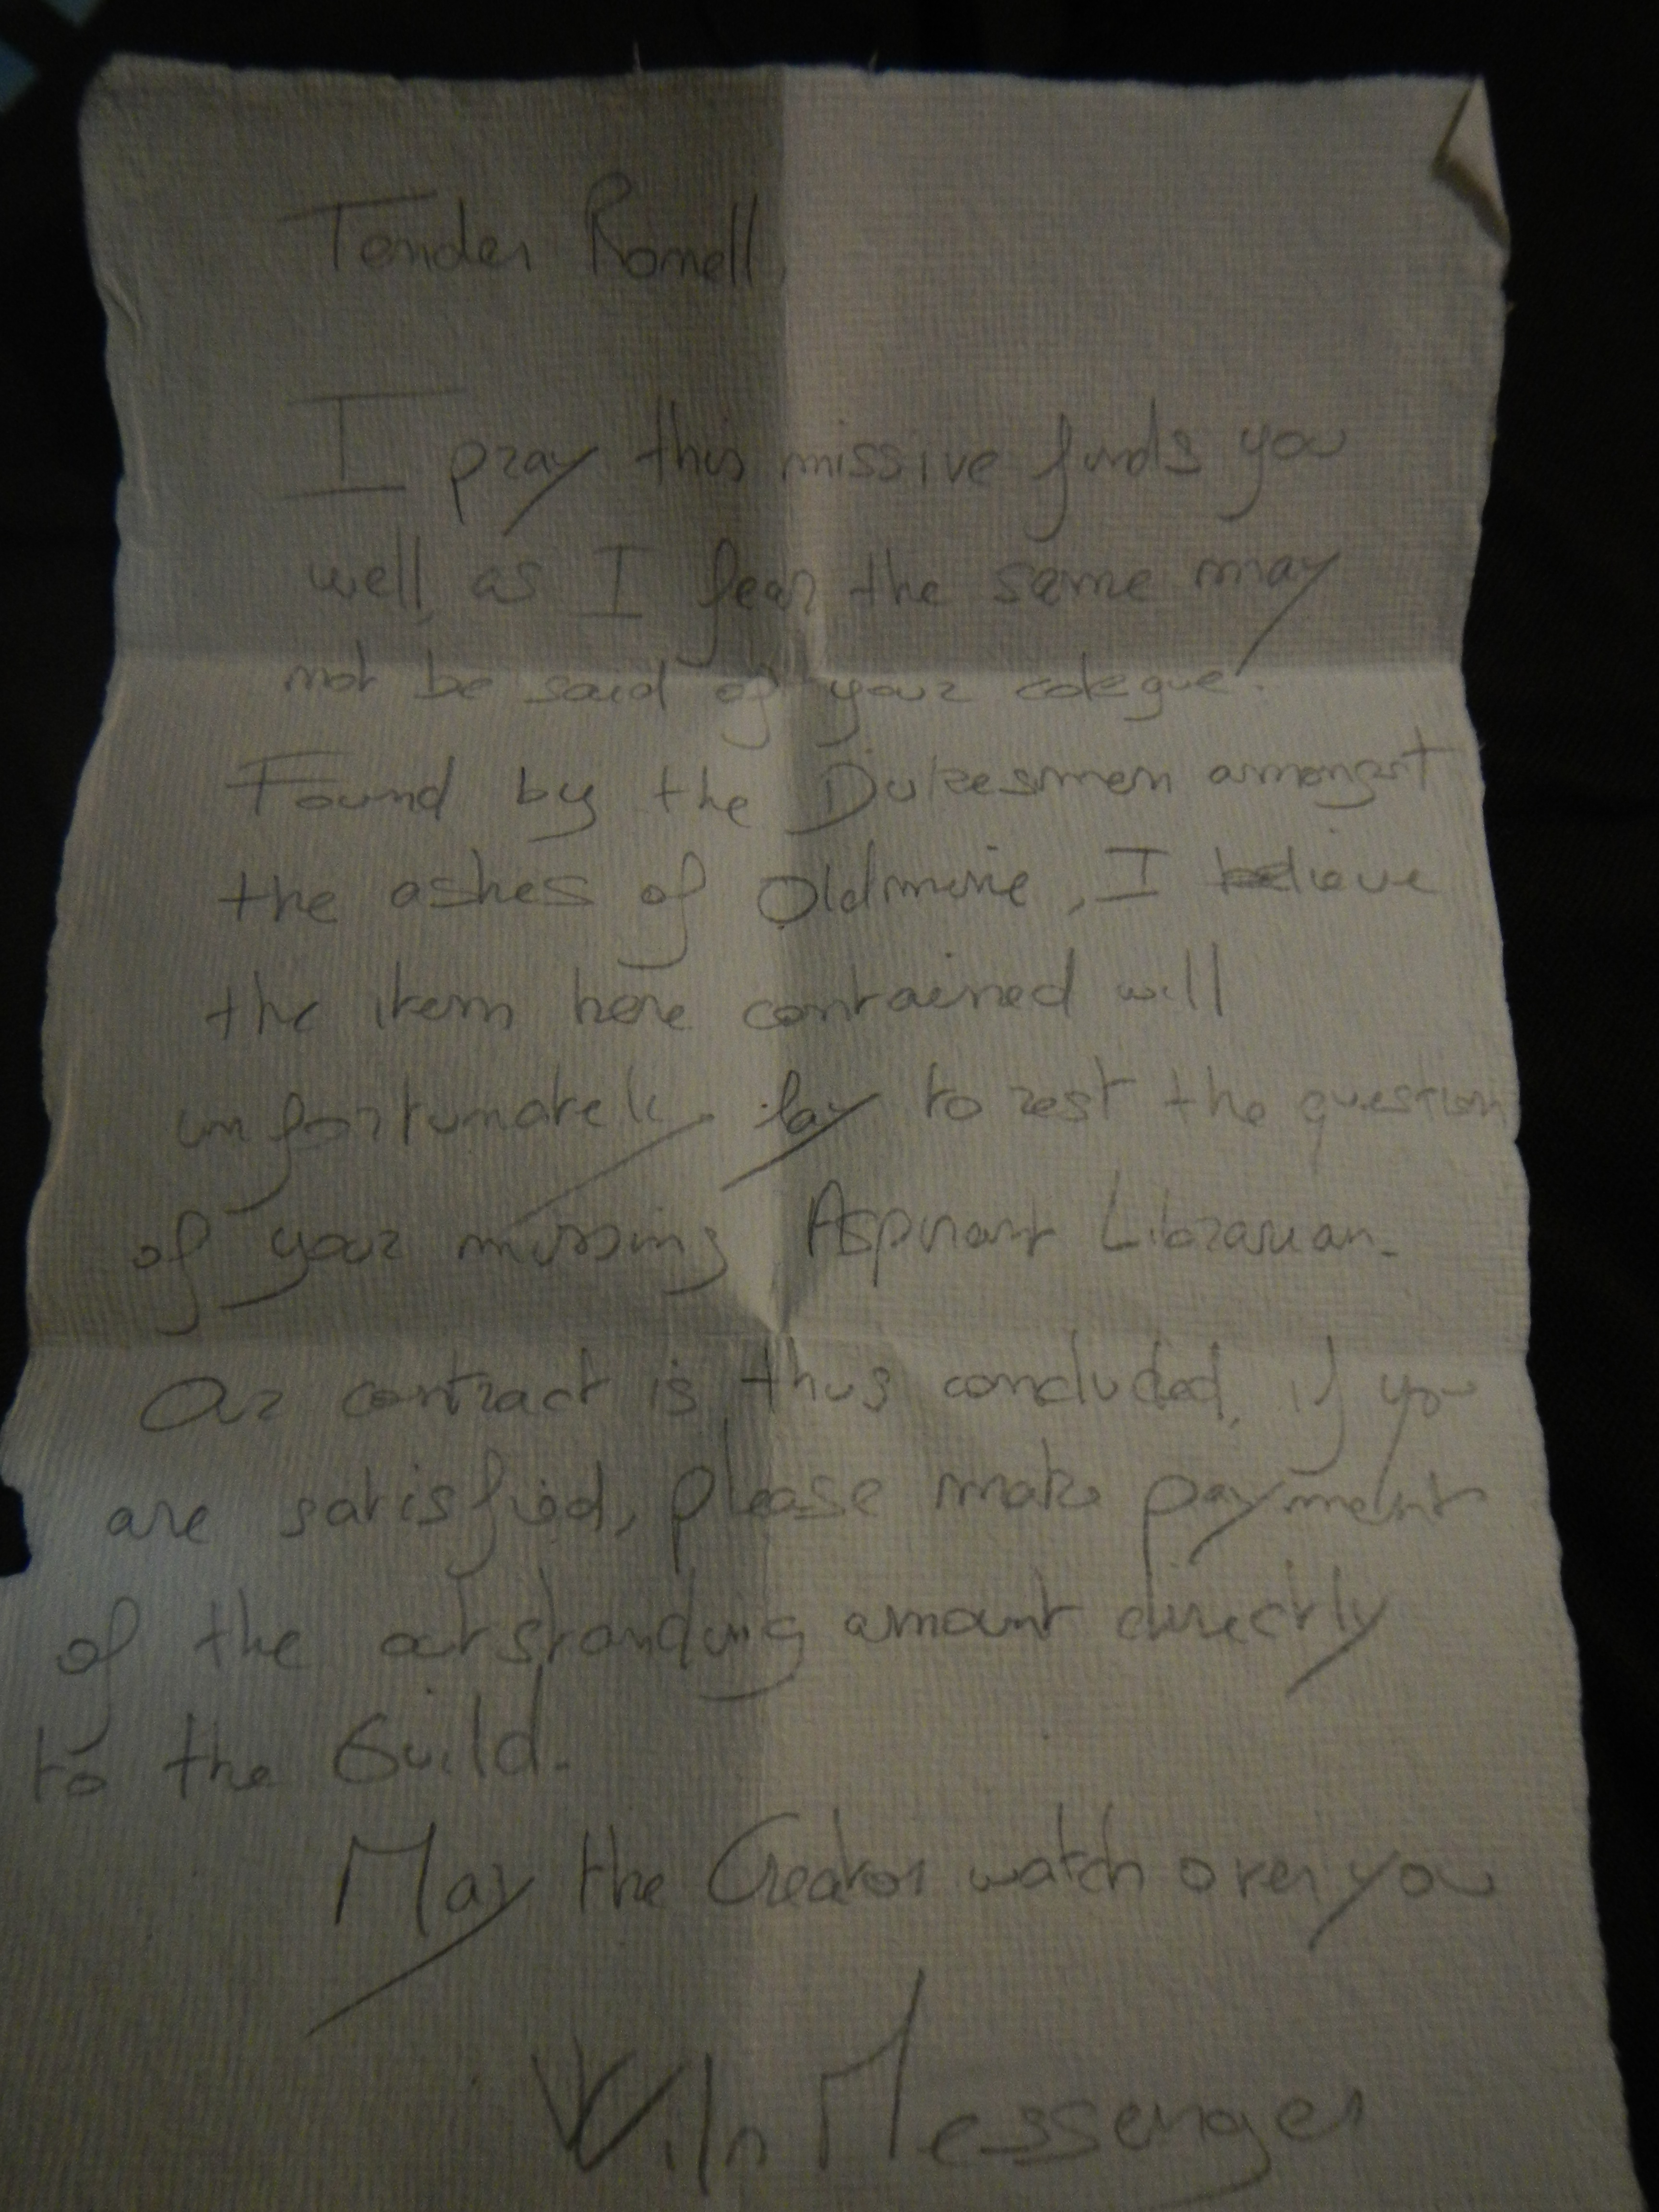 Tender Romell,
I pray this missive finds you
well, as I fear the same may
not be said of your colegue.
Found by the Dukesmen amongst
the ashes of Oldmine, I believe
the item here contained will
unfortunately lay to rest the question
of your missing Aspirant Librarian.
Our contract is thus concluded, if you
are satisfied, please make payment
of the outstanding amount directly
to the Guild.
May the Creator watch over you
Messenger